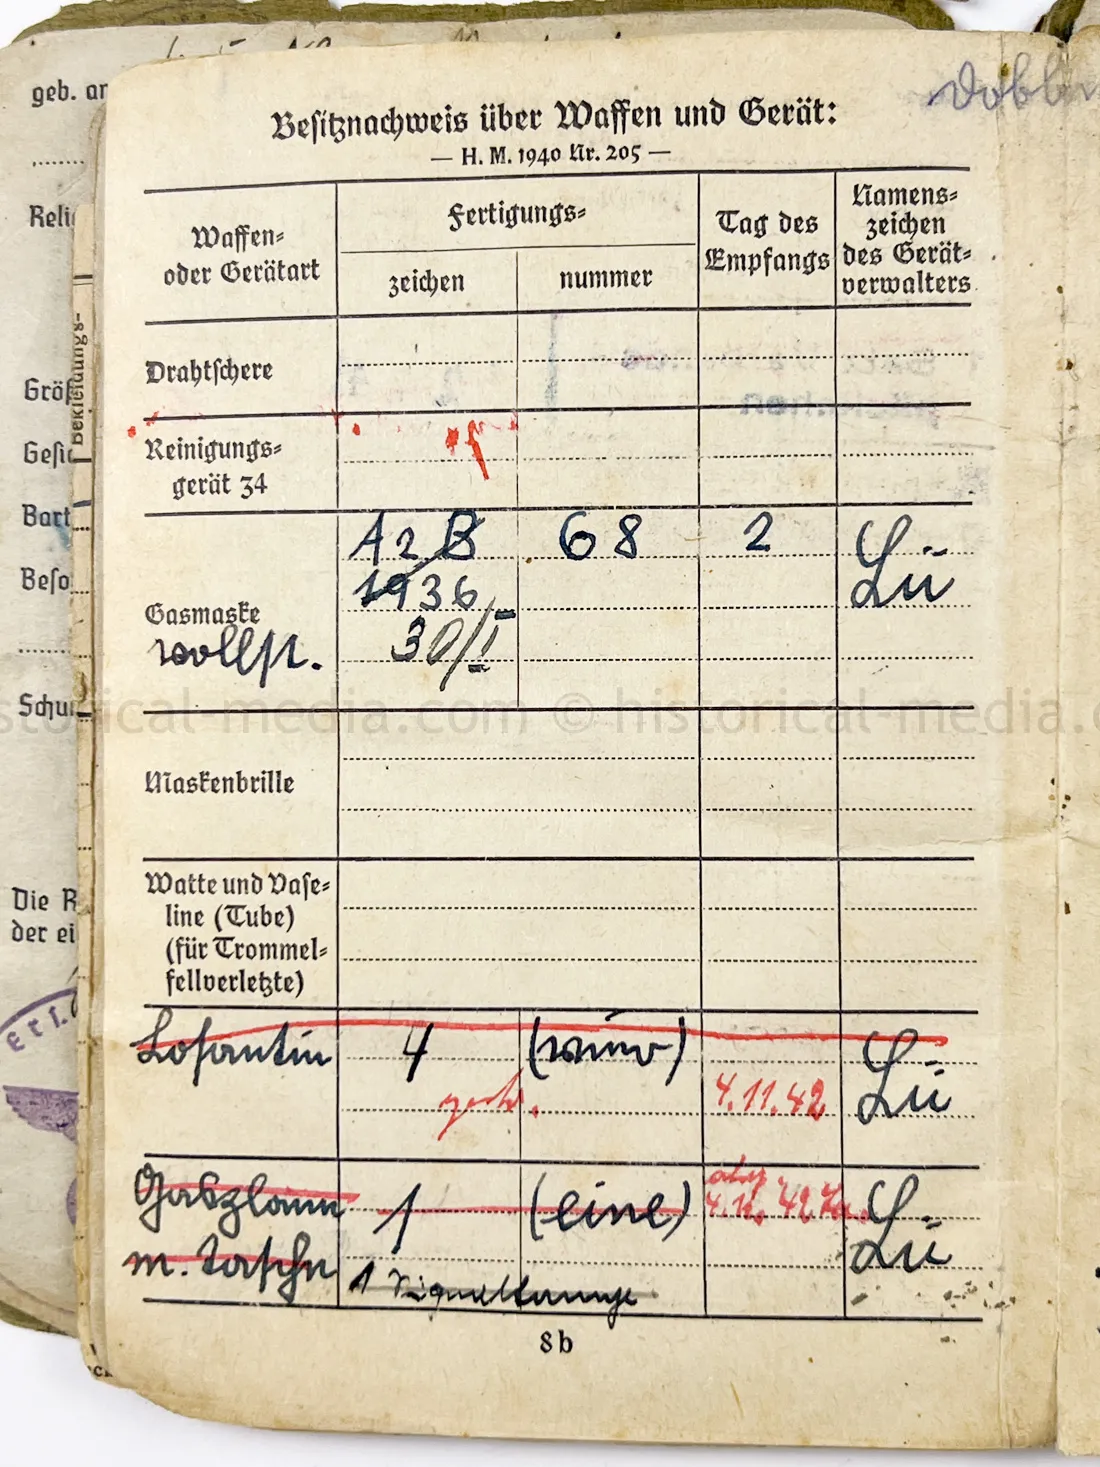 geb. an
Reli
Größ
Gesic
Bart
Beso
Schu
Die R
der ei
Bekleidungs-
Besitznachweis über Waffen und Gerät:
— H. M. 1940 Nr. 205 —
Waffen-
oder Gerätart
Fertigungs-
zeichen
nummer
Tag des
Empfangs
Namens-
zeichen
des Gerät-
verwalters
Drahtschere
Reinigungs-
gerät 34
Gasmaske
vollst.
A2B 68 2 Lü
1936
30/I
Maskenbrille
Watte und Vase-
line (Tube)
(für Trommel-
fellverletzte)
Losantin 4 (vier) Lü
4.11.42
Gasplane 1 (eine) Lü
m. Tasche
1
8b
historical-media.com © historical-media.c